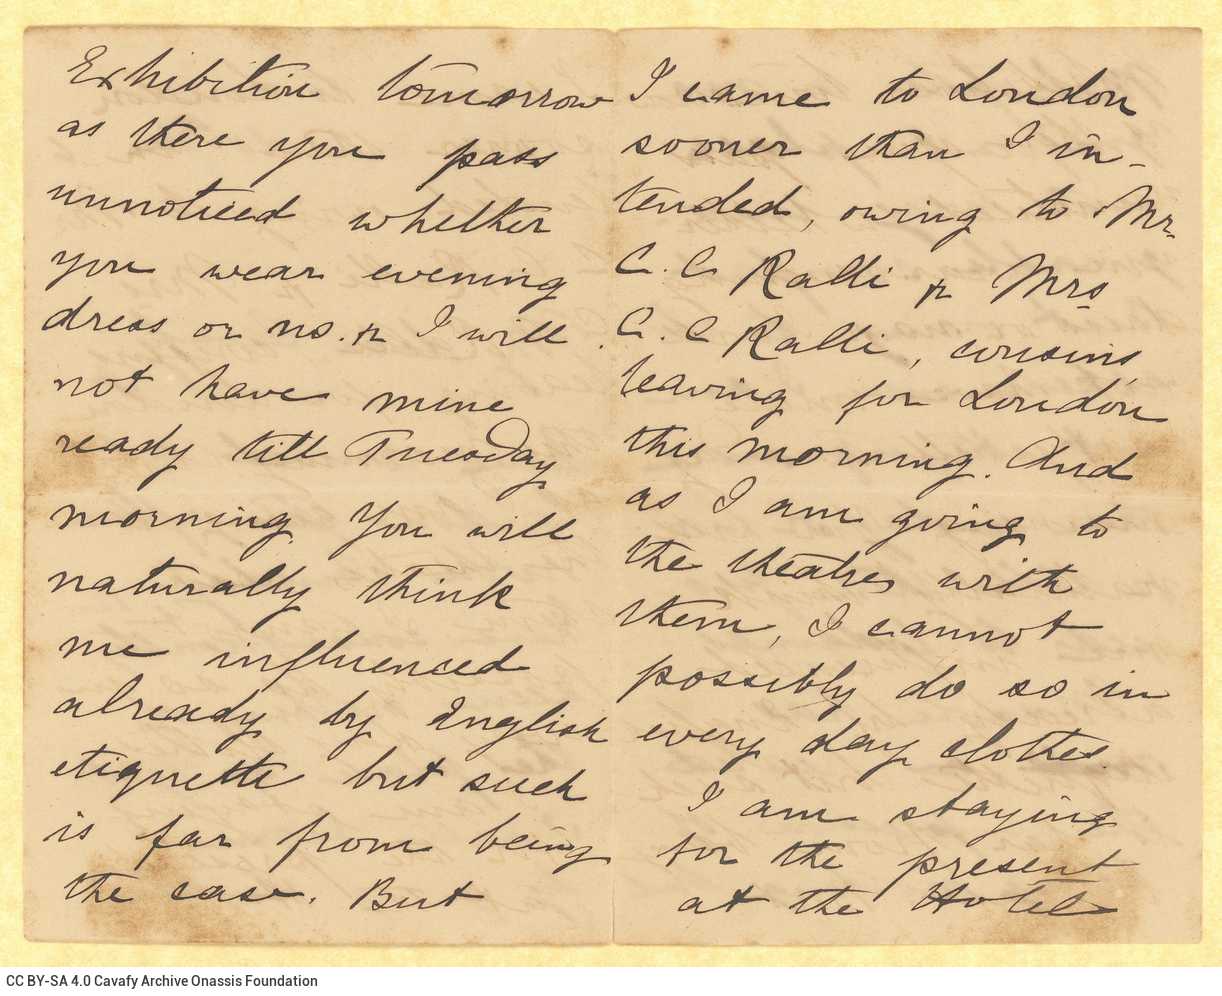 Exhibition tomorrow
as there you pass
unnoticed whether
you wear evening
dress or no. & I will
not have mine
ready till Tuesday
morning. You will
naturally think
me influenced
already by English
etiquette but such
is far from being
the case. But
I came to London
sooner than I in-
tended, owing to Mr.
C. C Ralli & Mrs
C. C Ralli, cousins
leaving for London
this morning. And
as I am going to
the theatres with
them, I cannot
possibly do so in
every day clothes.
I am staying
for the present
at the Hotel
CC BY-SA 4.0 Cavafy Archive Onassis Foundation